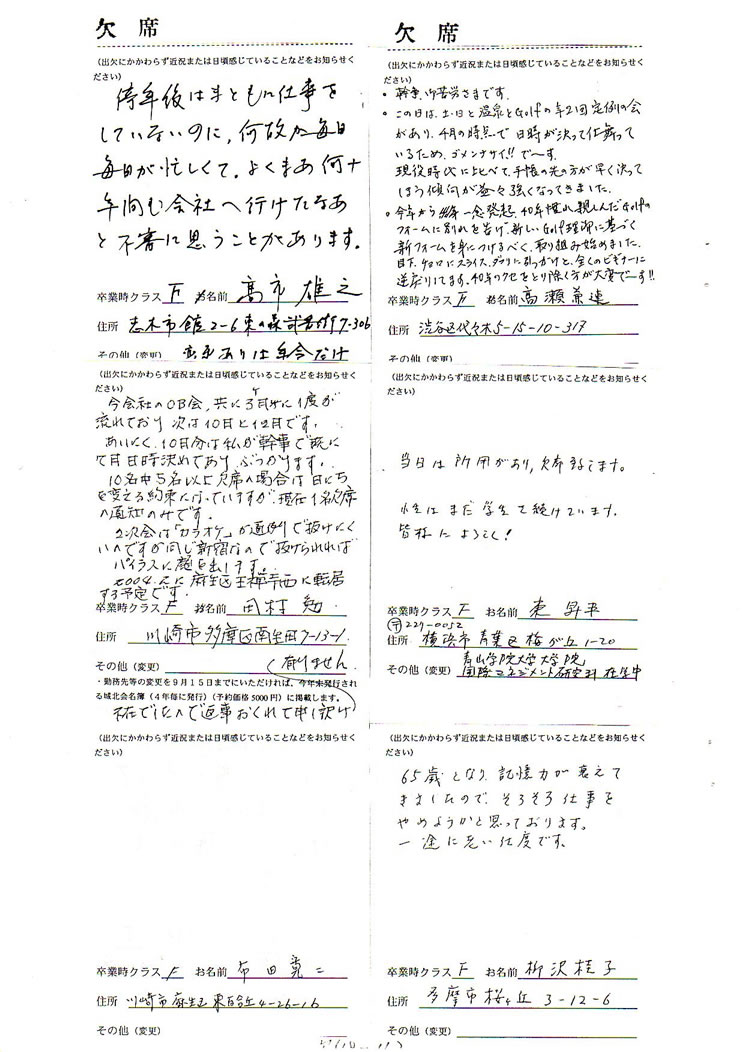 欠 席
(出欠にかかわらず近況または日頃感じていることなどをお知らせく
ださい)
停年後はまともに仕事を
していないのに、何故か毎日
毎日が忙しくて、よくまあ何十
年間も会社へ行けたなあ
と不審に思うことがあります。
卒業時クラス F お名前 高市 雄之
住所 志木市館2-6東の森 7-306
その他(変更) 年令だけ
(出欠にかかわらず近況または日頃感じていることなどをお知らせく
ださい)
今会社のOB会、共に3ヶ月に1度が
流れており 次は10日と12日です。
あいにく、10日分は私が幹事で既に
日時決めてあり ぶつかります。
10名中5名以上欠席の場合は日にち
を変える約束になっていますが、現在1名欠席
の通知のみです。
2次会は「カラオケ」が通例で抜けにく
いのですが同じ新宿なので抜けられれば
顔を出します。
2004. に麻生区王禅寺西に転居
する予定です。
卒業時クラス F お名前 田村 勉
住所 川崎市多摩区南生田7-13-1
その他(変更) (有りません
・勤務先等の変更を9月15日までにいただければ、今年末発行され
る城北会名簿(4年毎に発行)(予約価格5000円)に掲載します。
不在でしたので返事おくれて申し訳け
(出欠にかかわらず近況または日頃感じていることなどをお知らせく
ださい)
卒業時クラス F お名前 布田
住所 川崎市麻生区東百合丘4-26-16
その他(変更)
欠 席
(出欠にかかわらず近況または日頃感じていることなどをお知らせく
ださい)
・幹事、御苦労さまです。
・この日は、土・日と温泉とGolfの年2回定例の会
があり、4月の時点で日時が決って仕舞って
いるため、ゴメンナサイ!! で〜す。
現役時代に比べて、手帳の先の方が早く決って
しまう傾向が益々強くなってきました。
・今年から 一念発起、40年慣れ親しんだGolfの
フォームに別れを告げ、新しいGolf理論に基づく
新フォームを身につけるべく、取り組み始めました。
目下、チョロにスライス、ダフリに引っかけと、全くのビギナーに
逆戻りしてます。40年のクセをとり除く方が大変で〜す!!
卒業時クラス F お名前 高瀬 兼達
住所 渋谷区代々木5-15-10-317
その他(変更)
(出欠にかかわらず近況または日頃感じていることなどをお知らせく
ださい)
当日は所用があり、欠席致します。
小生はまだ学生を続けています。
皆様によろしく!
卒業時クラス F お名前 東 昇平
〒227-0052
住所 横浜市青葉区梅が丘1-20
その他(変更) 青山学院大学大学院
国際マネジメント研究科 在学中
(出欠にかかわらず近況または日頃感じていることなどをお知らせく
ださい)
65歳となり、記憶力が衰えて
きましたので、そろそろ仕事を
やめようかと思っております。
一途に老い仕度です。
卒業時クラス F お名前 柳沢桂子
住所 多摩市桜ヶ丘 3-12-6
その他(変更)